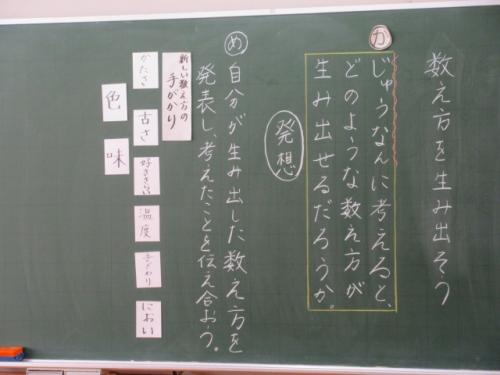 数え方を生み出そう
カ
じゅうなんに考えると、
どのような数え方が
生み出せるだろうか。
発想
め
自分が生み出した数え方を
発表し、考えたことを伝え合おう。
新しい数え方の
手がかり
かたさ
古さ
好ききらい
温度
手ざわり
におい
色
味